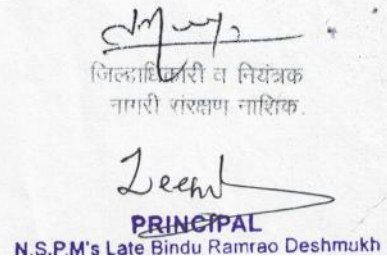 जिल्हाधिकारी व नियंत्रक
नागरी संरक्षण नाशिक.
PRINCIPAL
N.S.P.M's Late Bindu Ramrao Deshmukh